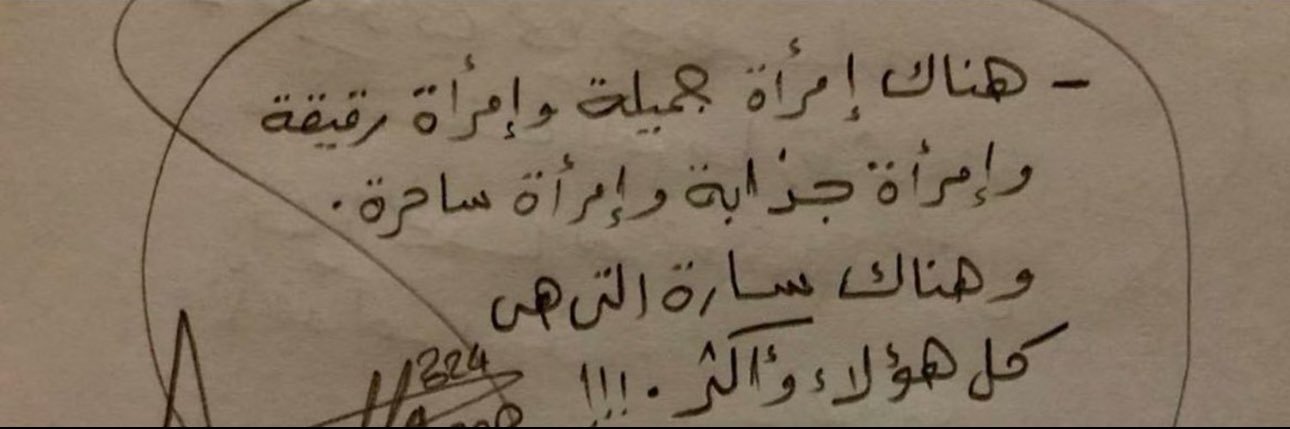 - هناك إمرأة جميلة وإمرأة رقيقة
وإمرأة جذابة وإمرأة ساحرة.
وهناك سارة التى هى
كل هؤلاء وأكثر . !!!
324